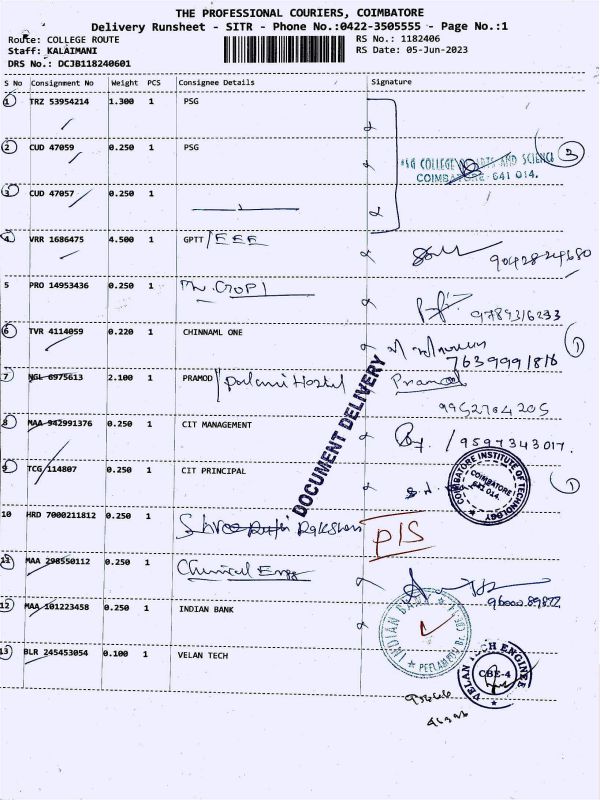 THE PROFESSIONAL COURIERS, COIMBATORE
Delivery Runsheet - SITR - Phone No.:0422-3505555 - Page No.:1
Route: COLLEGE ROUTE RS No.: 1182406
Staff: KALAIMANI RS Date: 05-Jun-2023
DRS No.: DCJB118240601
S No Consignment No Weight PCS Consignee Details Signature
1 TRZ 53954214 1.300 1 PSG
2 CUD 47059 0.250 1 PSG
PSG COLLEGE OF ARTS AND SCIENCE
COIMBATORE - 641 014.
3 CUD 47057 0.250 1
4 VRR 1686475 4.500 1 GPTT/EEE
9042824680
5 PRO 14953436 0.250 1
6 TVR 4114059 0.220 1 CHINNAML ONE
7639991816
7 NGL 6975613 2.100 1 PRAMOD Hostel Pramod
9952704205
8 MAA 942991376 0.250 1 CIT MANAGEMENT /9597343017.
9 TCG 114807 0.250 1 CIT PRINCIPAL
COIMBATORE INSTITUTE OF TECHNOLOGY
COIMBATORE
641 014.
DOCUMENT DELIVERY
10 HRD 7000211812 0.250 1
P/S
11 MAA 298550112 0.250 1 Chemical Engg
12 MAA 101223458 0.250 1 INDIAN BANK
INDIAN BANK
13 BLR 245453054 0.100 1 VELAN TECH
VELAN TECH ENGINEE
CBE-4